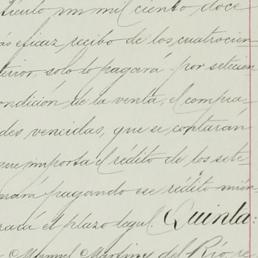 título un mil ciento doce
más eficaz recibo de los cuatrocien
terior solo lo pagará por setecien
condición de la venta, el compra
des vencidas, que se contarán
que importa el rédito de los sete
pagando ese rédito mien
el plazo legal. Quinta:
Manuel Martinez del Río re